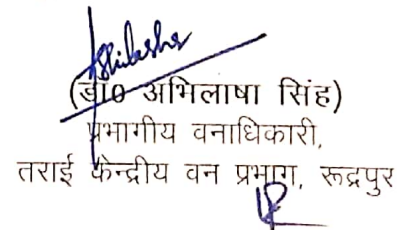 Abhilasha
(डा0 अभिलाषा सिंह)
प्रभागीय वनाधिकारी,
तराई केन्द्रीय वन प्रभाग, रूद्रपुर